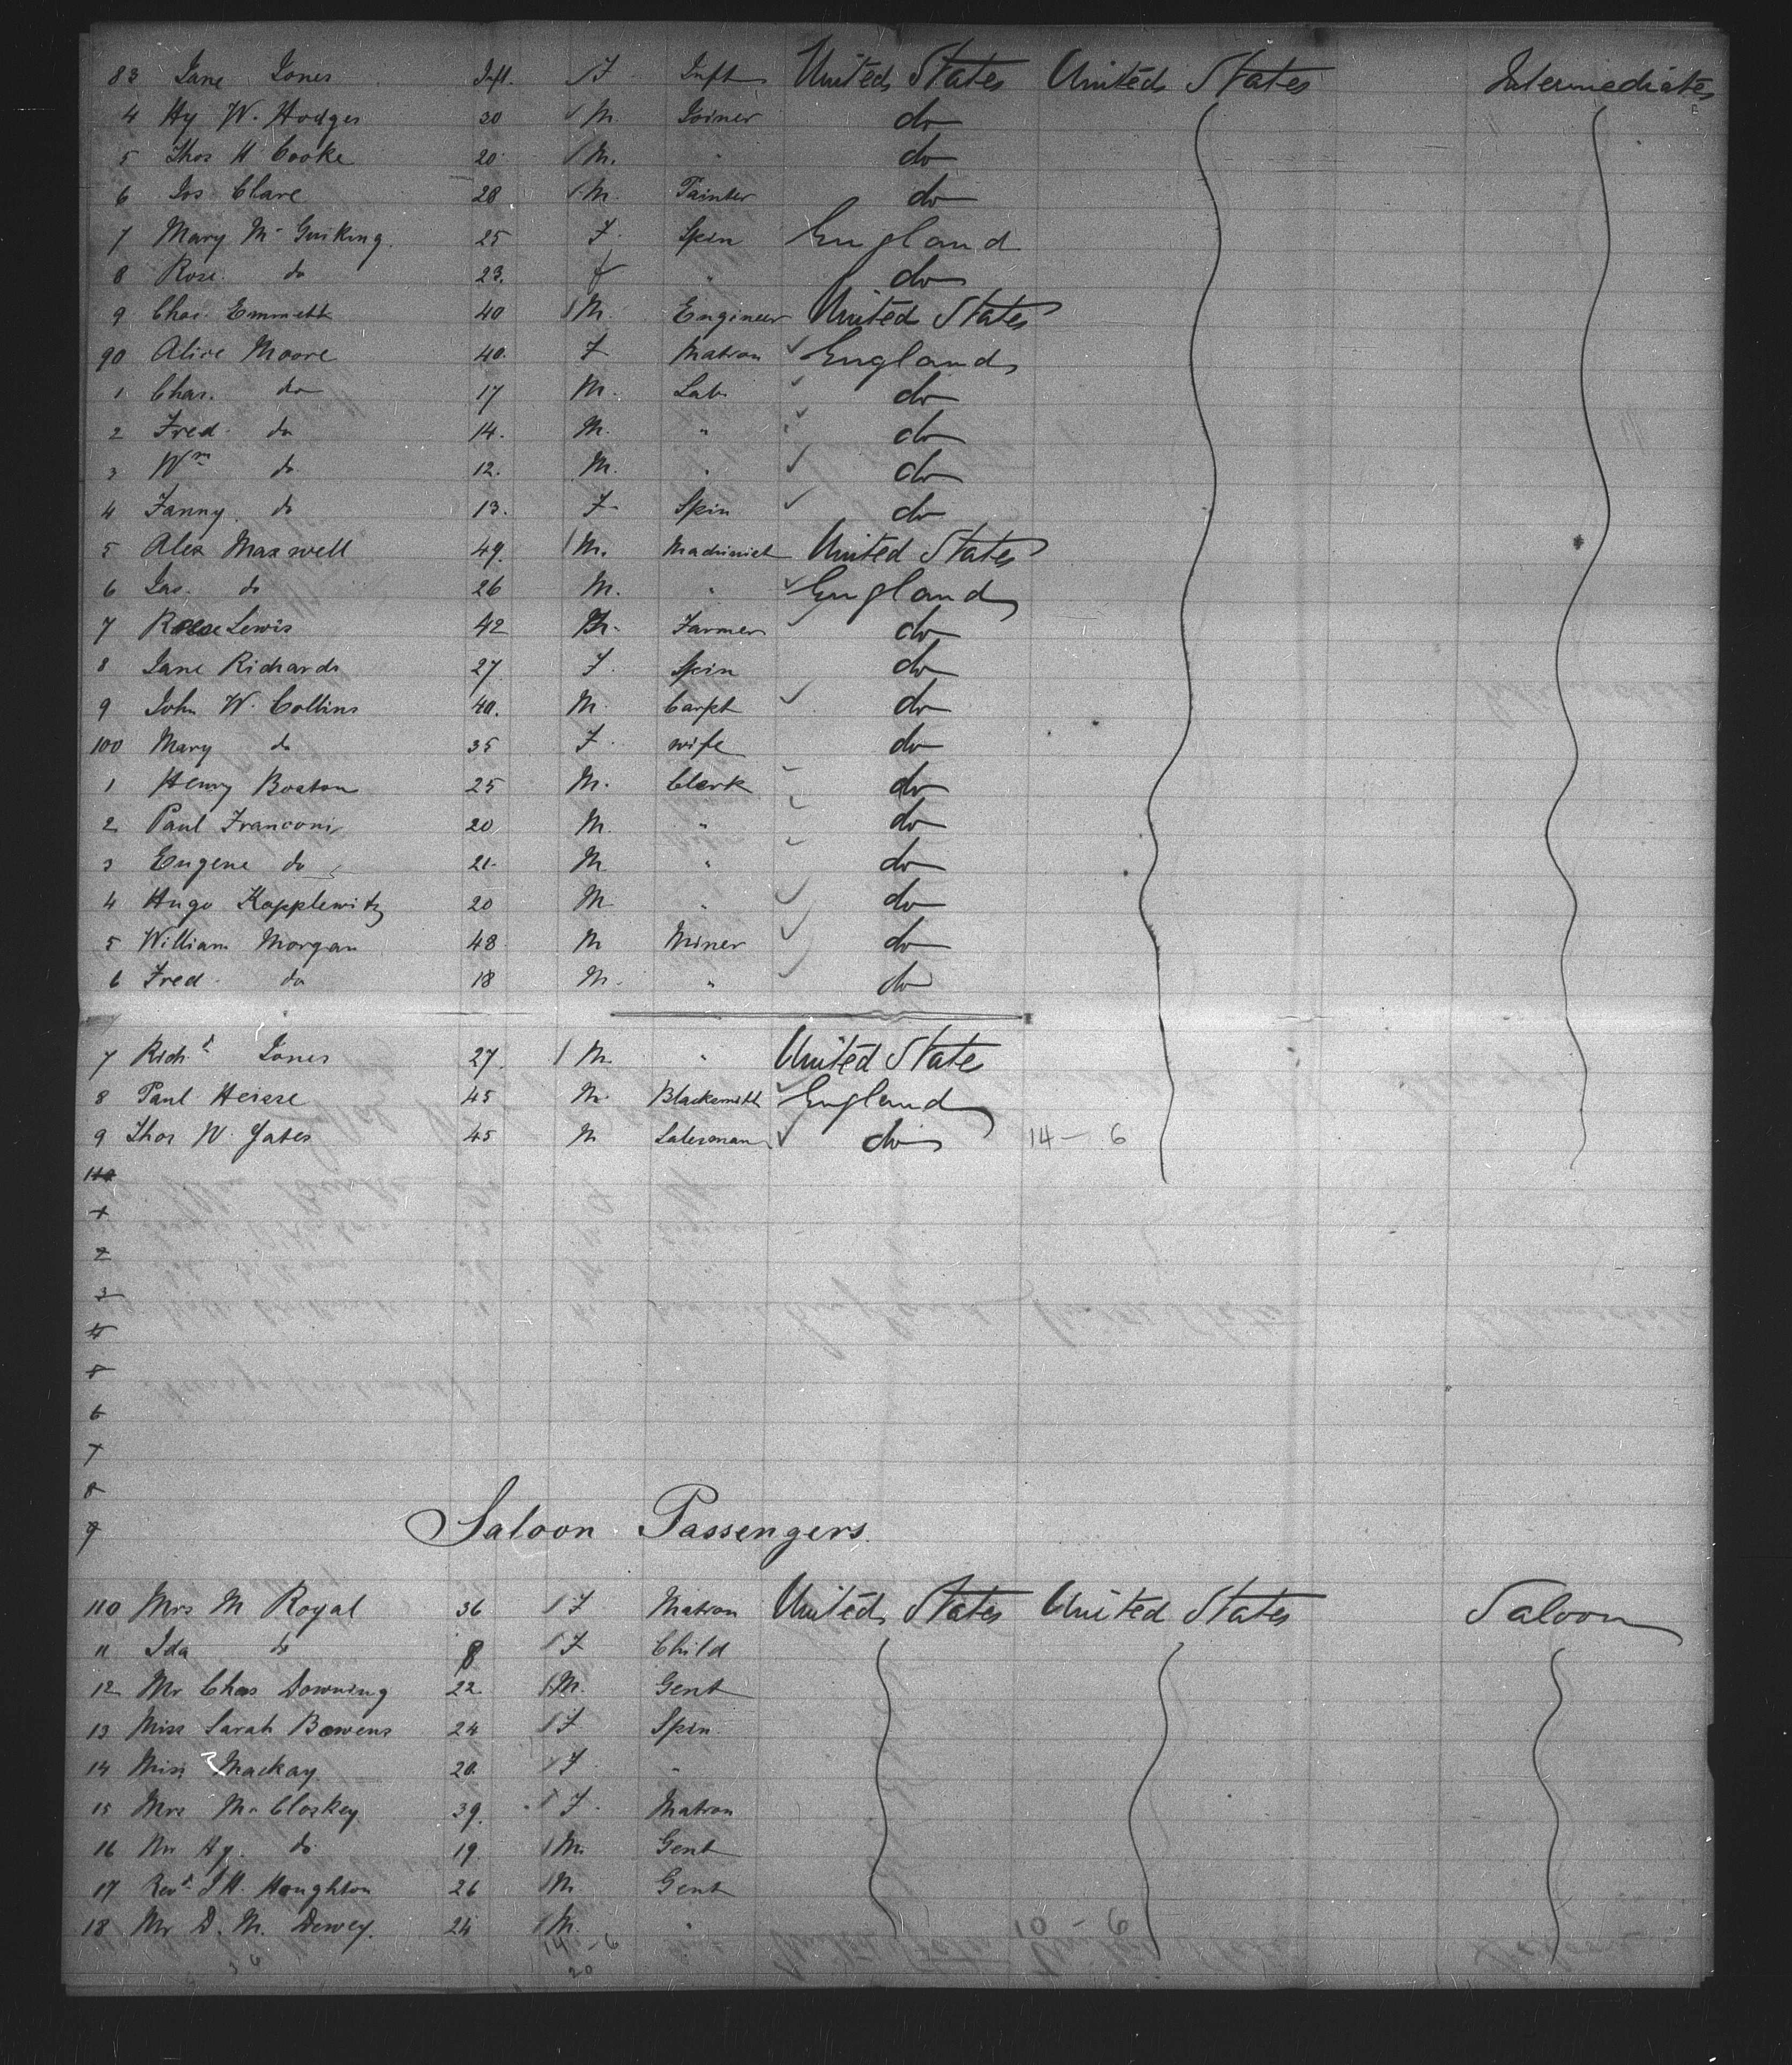 83 Jane Jones Inft. /F Inft United States United States Intermediate
4 Hy W. Hodges 30 /M. Joiner do
5 Thos H Cooke 20 /M. " do
6 Jos Clare 28 /M. Painter do
7 Mary Mc Guiking 25 F. Spin England
8 Rose do 23. f " do
9 Chas. Emmett 40 /M. Engineer United States
90 Alice Moore 40. F Matron ✓ England
1 Chas. do 17 M. Lab. ✓ do
2 Fred. do 14. M. " ✓ do
3 Wm do 12. M. " ✓ do
4 Fanny. do 13. F Spin ✓ do
5 Alex Maxwell 49. /M. Machinist United States
6 Jas. do 26 M. " ✓ England
7 Lewis 42 M. Farmer ✓ do
8 Jane Richards 27. F. Spin do
9 John W. Collins 40. M. Carpt ✓ do
100 Mary do 35 F. wife do
1 Henry Boaton 25 M. Clerk do
2 Paul Franconi 20 M. " do
3 Eugene do 21. M. " do
4 Hugo Kopplewitz 20 M " ✓ do
5 William Morgan 48 M Miner ✓ do
6 Fred. do 18 M. " ✓ do
7 Richd Jones 27. /M. " United State
8 Paul Heisse 45 M. Blacksmith ✓ England
9 Thos W. Yates 45 M Salesman ✓ do 14 - 6
110
1
2
3
4
5
6
7
8
9
Saloon Passengers.
110 Mrs M Royal 36 /F Matron United States United States Saloon
11 Ida do 8 /F Child
12 Mr Chas Downing 22 /M. Gent
13 Miss Sarah Bowens 24 /F Spin.
14 Miss Mackay 20. /F. "
15 Mrs Mc Closkey 39. /F. Matron
16 Mr Hy. do 19. /M. Gent
17 Revd J H. Houghton 26 /M. Gent
18 Mr D. M. Dewey. 24 /M. " 10 - 6
14 - 6
20